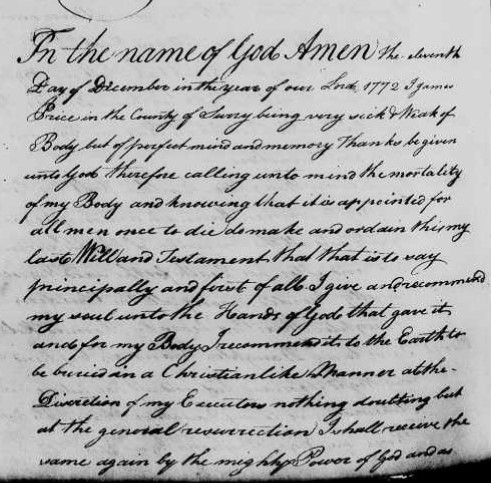 In the name of God Amen the eleventh
Day of December in the year of our Lord 1772 I James
Price in the County of Surry being very sick & Weak of
Body but of perfect mind and memory Thanks be given
unto God therefore calling unto mind the mortality
of my Body and knowing that it is appointed for
all men once to die do make and ordain this my
last Will and Testament that that is to say
principally and first of all I give and recommend
my soul unto the Hands of God that gave it
and for my Body I recommend it to the Earth to
be buried in a Christian like Manner at the
Discretion of my Executors nothing doubting but
at the general resurrection I shall receive the
same again by the mighty Power of God and as